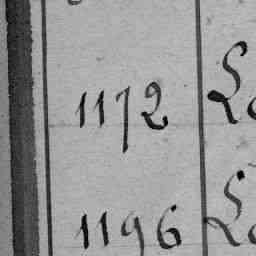 1172
1196